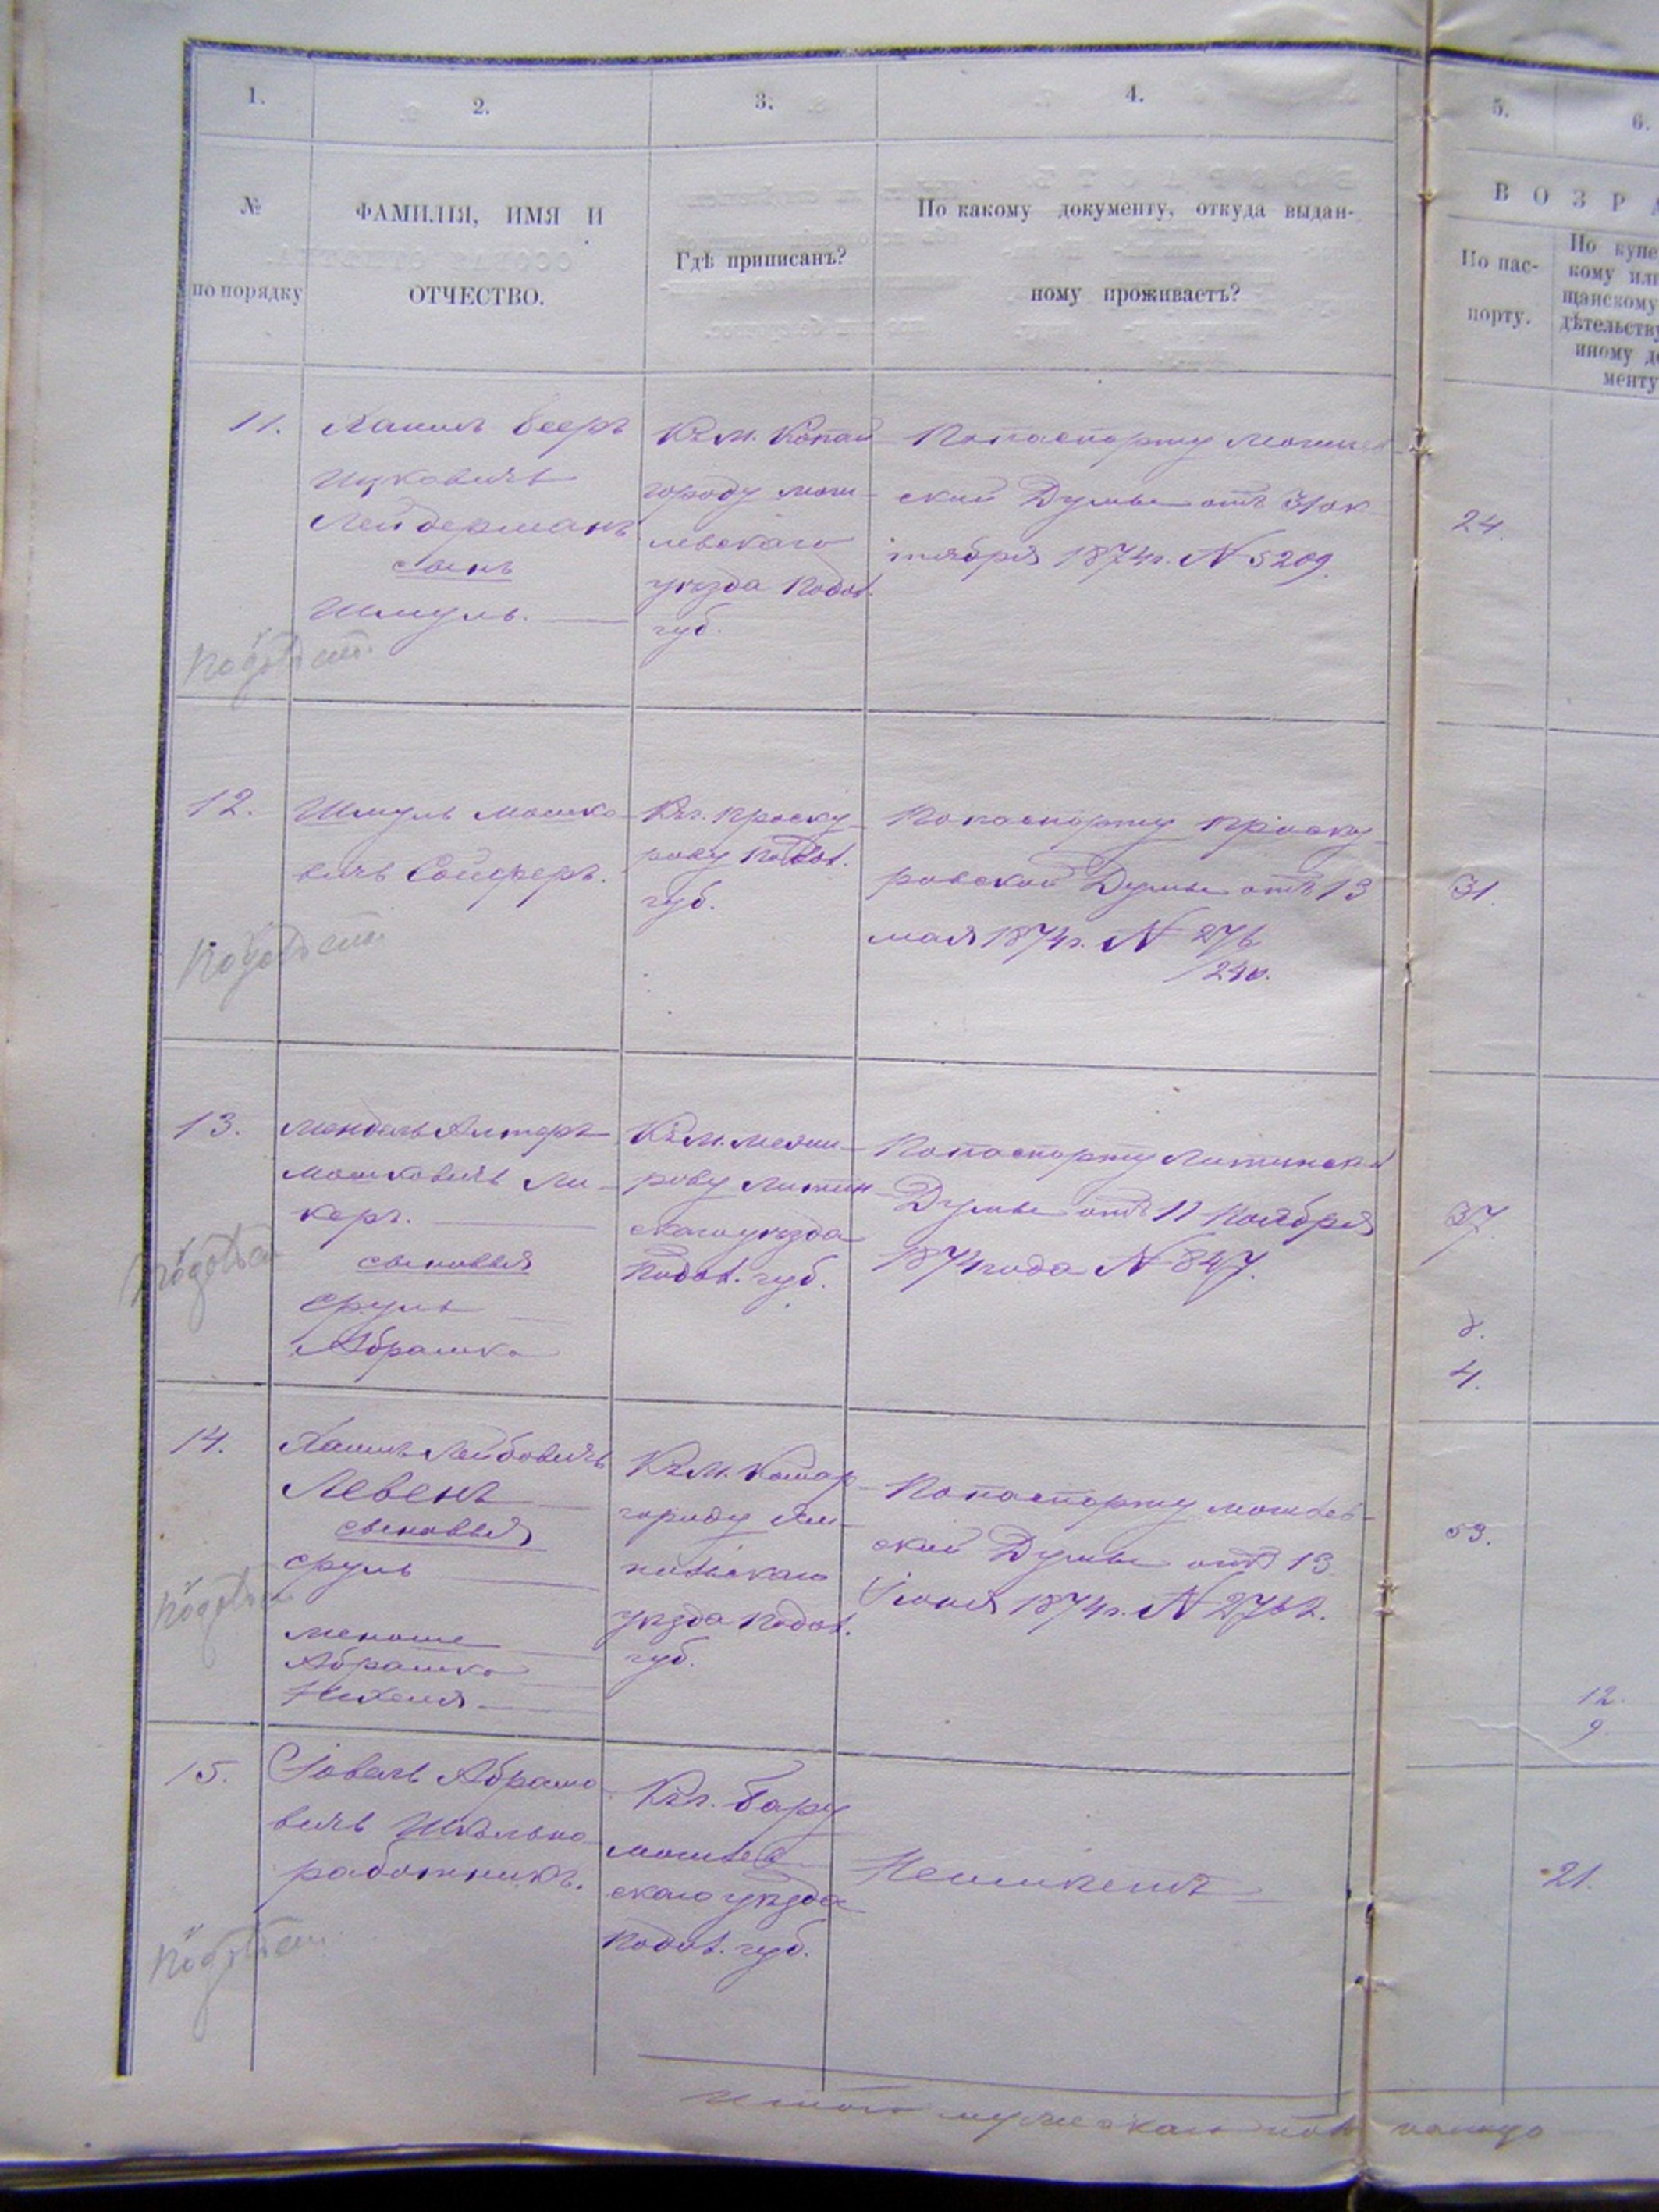 1.
2.
3.
4.
5.
6.
№
по порядку
ФАМИЛІЯ, ИМЯ И
ОТЧЕСТВО.
Гдѣ приписанъ?
По какому документу, откуда выдан-
ному проживаетъ?
В О З Р А
По пас-
порту.
По купе
кому или
щанскому
дѣтельству
иному до
менту
11.
Хаимъ Бееръ
Ицковичъ
Лейдерманъ
сынъ
Шмуль.
Къ м. Копай
городу моги-
левскаго
уѣзда Подол.
губ.
По паспорту
ской Думы отъ 31 ок
тября 1874 г. N 5209.
24.
12.
Шмуль Мошко-
вичъ Сойферъ.
Къ г. Проску-
рову Подол.
губ.
По паспорту Проску-
ровской Думы отъ 13
мая 1874 г. N 276
/240.
31.
13.
Мендель Алтеръ
Мошковичъ Ли-
керъ.
сыновья
Сруль
Абрашко
Къ м. Межи-
рову Литин
скаго уѣзда
Подол. губ.
По паспорту Литинской
Думы отъ 11 Ноября
1874 года N 847.
37
8.
4.
14.
Хаимъ Лейбовичъ
Левенъ
сыновья
Сруль
Меноше
Абрашко
Къ м.
городу Ям-
польскаго
уѣзда Подол.
губ.
По паспорту могилев-
ской Думы отъ 13
Іюня 1874 г. N 2762.
53.
12.
9
15.
Іовель Абрамо
вичъ Школьно-
работникъ.
Къ г. Бару
могилев
скаго уѣзда
Подол. губ.
Неимѣетъ
21.
Итого мужскаго пола